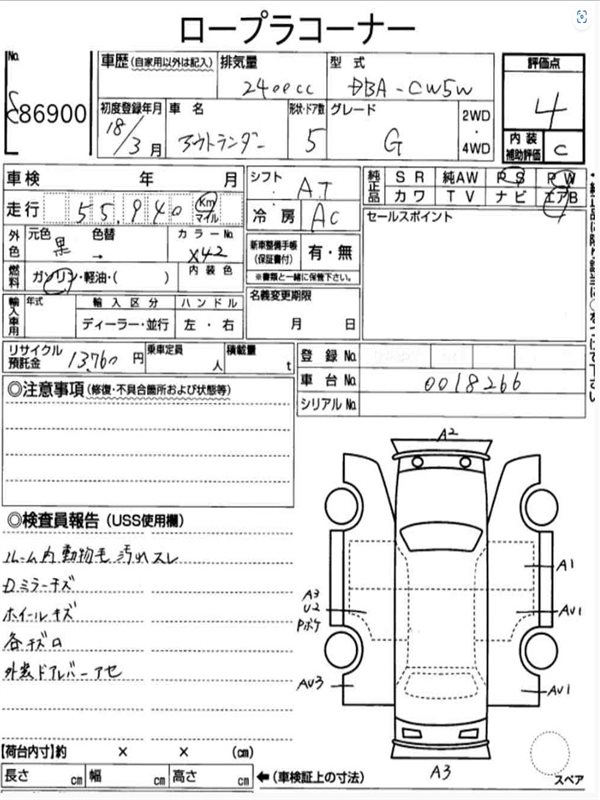 ロープラコーナー
No.
86900
車歴 (自家用以外は記入) 排気量 型式 評価点
2400cc DBA-CW5W
4
初度登録年月 車名 形状・ドア数 グレード 2WD・4WD
18/3月 アウトランダー 5 G
内装補助評価 C
車検 年 月 シフト AT
純正品 SR 純AW PS PW
カワ TV ナビ エアB
走行 55,940 Km マイル
冷房 AC
セールスポイント
外色 元色 色替 カラーNo.
黒 → X42
新車整備手帳(保証書付) 有・無
※書類と一緒に保管下さい。
燃料 ガソリン・軽油・( ) 内装色
名義変更期限
月 日
輸入車用 年式 輸入区分 ハンドル
ディーラー・並行 左・右
リサイクル預託金 13,760円 乗車定員 人 積載量 t
登録No.
車台No. 0018266
シリアルNo.
◎注意事項 (修復・不具合箇所および状態等)
A2
◎検査員報告 (USS使用欄)
ルーム内動物毛 汚れスレ
Dミラーキズ
ホイールキズ
各キズロ
A1
A3
U2
Pボケ
AU1
AU3
AU1
A3
【荷台内寸】約 × × (cm)
長さ cm 幅 cm 高さ cm ←(車検証上の寸法)
スペア